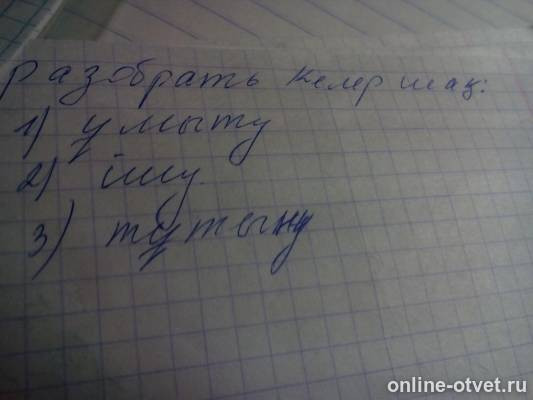 разобрать келер шақ:
1) ұмыту
2) ішу.
3) тұтыну
online-otvet.ru